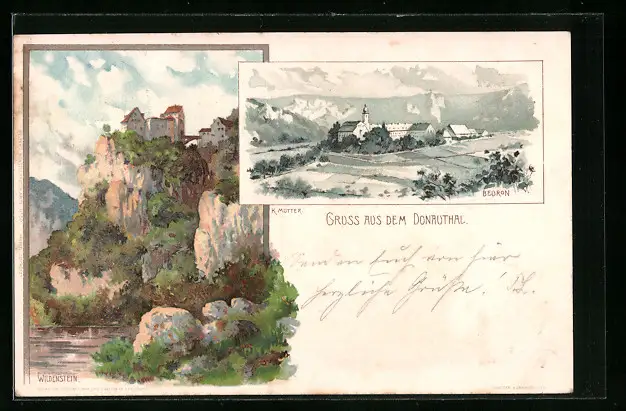 BEURON
K. MUTTER
GRUSS AUS DEM DONAUTHAL.
Senden Euch von hier
herzliche Grüße!
WILDENSTEIN.